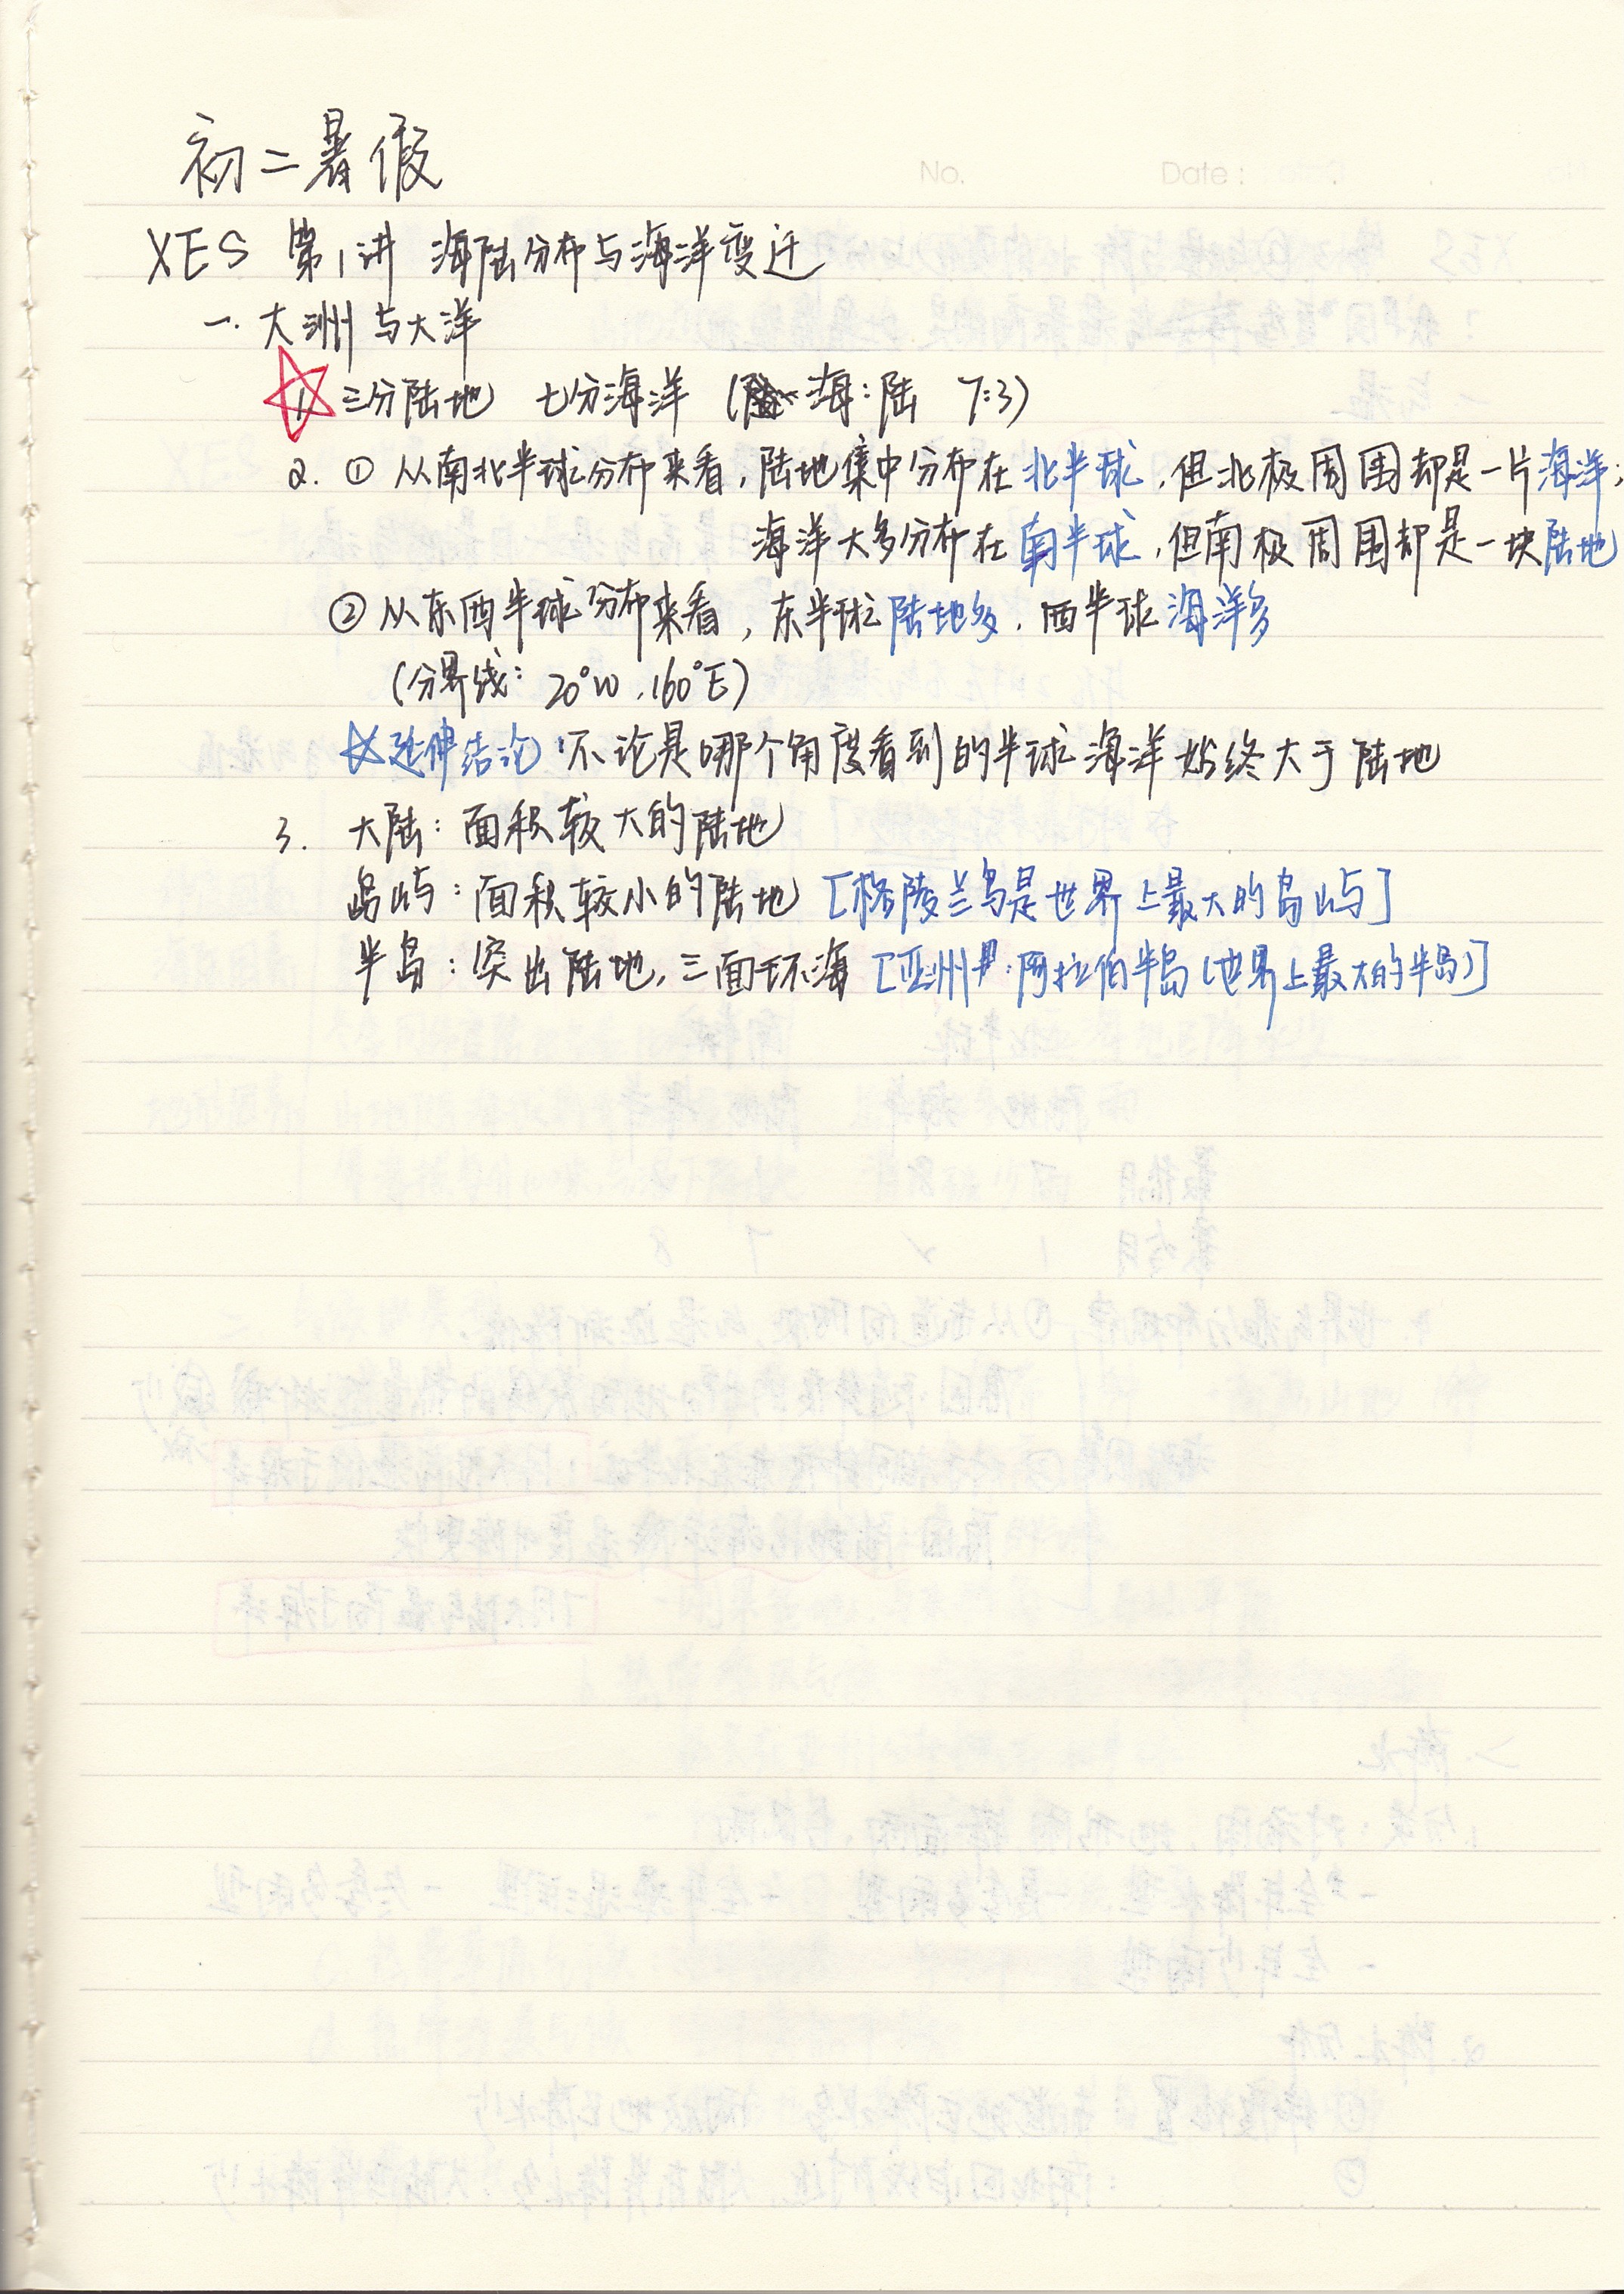 No.
Date:
初二暑假
XES 第1讲 海陆分布与海洋变迁
一. 大洲与大洋
1 三分陆地 七分海洋 (海:陆 7:3)
2. ① 从南北半球分布来看,陆地集中分布在北半球,但北极周围却是一片海洋;
海洋大多分布在南半球,但南极周围却是一块陆地
② 从东西半球分布来看,东半球陆地多.西半球海洋多
(分界线: 20°W,160°E)
☆延伸结论:不论是哪个角度看到的半球海洋始终大于陆地
3. 大陆:面积较大的陆地
岛屿:面积较小的陆地[格陵兰岛是世界上最大的岛屿]
半岛:突出陆地,三面环海[亚洲:阿拉伯半岛(世界上最大的半岛)]